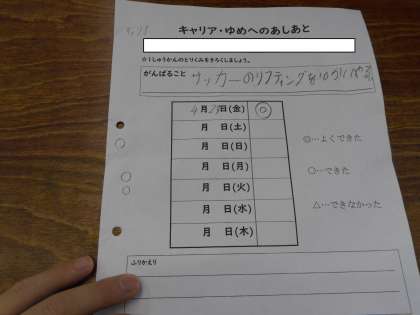 キャリア・ゆめへのあしあと
☆1しゅうかんのとりくみをきろくしましょう。
がんばること サッカーのリフティングを
4月29日(金) ◎
月 日(土)
月 日(日)
月 日(月)
月 日(火)
月 日(水)
月 日(木)
◎…よくできた
○…できた
△…できなかった
ふりかえり